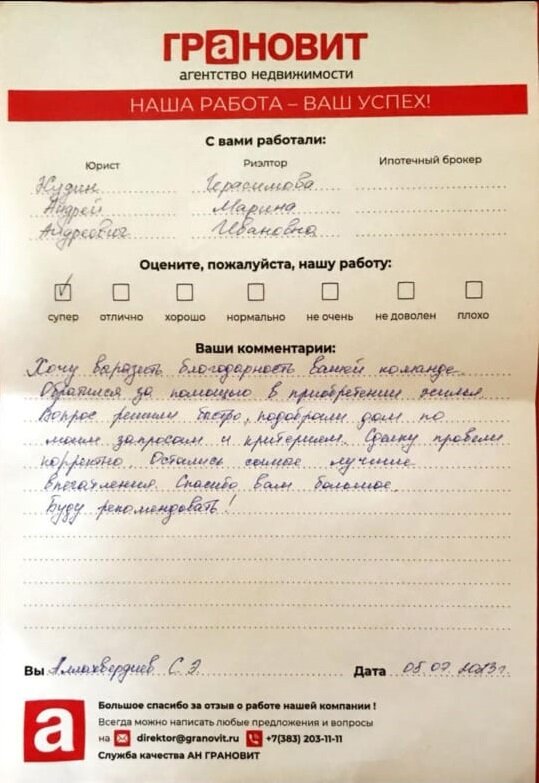 ГРАНОВИТ
агентство недвижимости
НАША РАБОТА – ВАШ УСПЕХ!
С вами работали:
Юрист Риэлтор Ипотечный брокер
Нудин Герасимова
Андрей Марина
Андреевич Ивановна
Оцените, пожалуйста, нашу работу:
супер отлично хорошо нормально не очень не доволен плохо
Ваши комментарии:
Хочу выразить благодарность вашей команде.
Обратился за помощью в приобретении жилья.
Вопрос решили быстро, подобрали дом по
моим запросам и критериям. Сделку провели
корректно. Остались самые лучшие
впечатления. Спасибо вам большое.
Буду рекомендовать!
Вы Аллахвердиев С.Э. Дата 05.07.2023г.
а
Большое спасибо за отзыв о работе нашей компании !
Всегда можно написать любые предложения и вопросы
на direktor@granovit.ru +7(383) 203-11-11
Служба качества АН ГРАНОВИТ